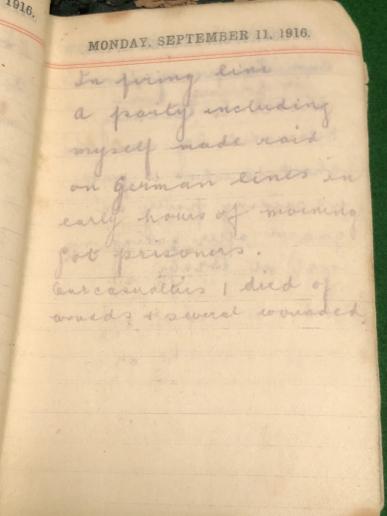 1916.
MONDAY, SEPTEMBER 11, 1916.
In firing line
a party including
myself made raid
on German lines in
early hours of morning
got prisoners.
Our casualties 1 died of
wounds & several wounded.